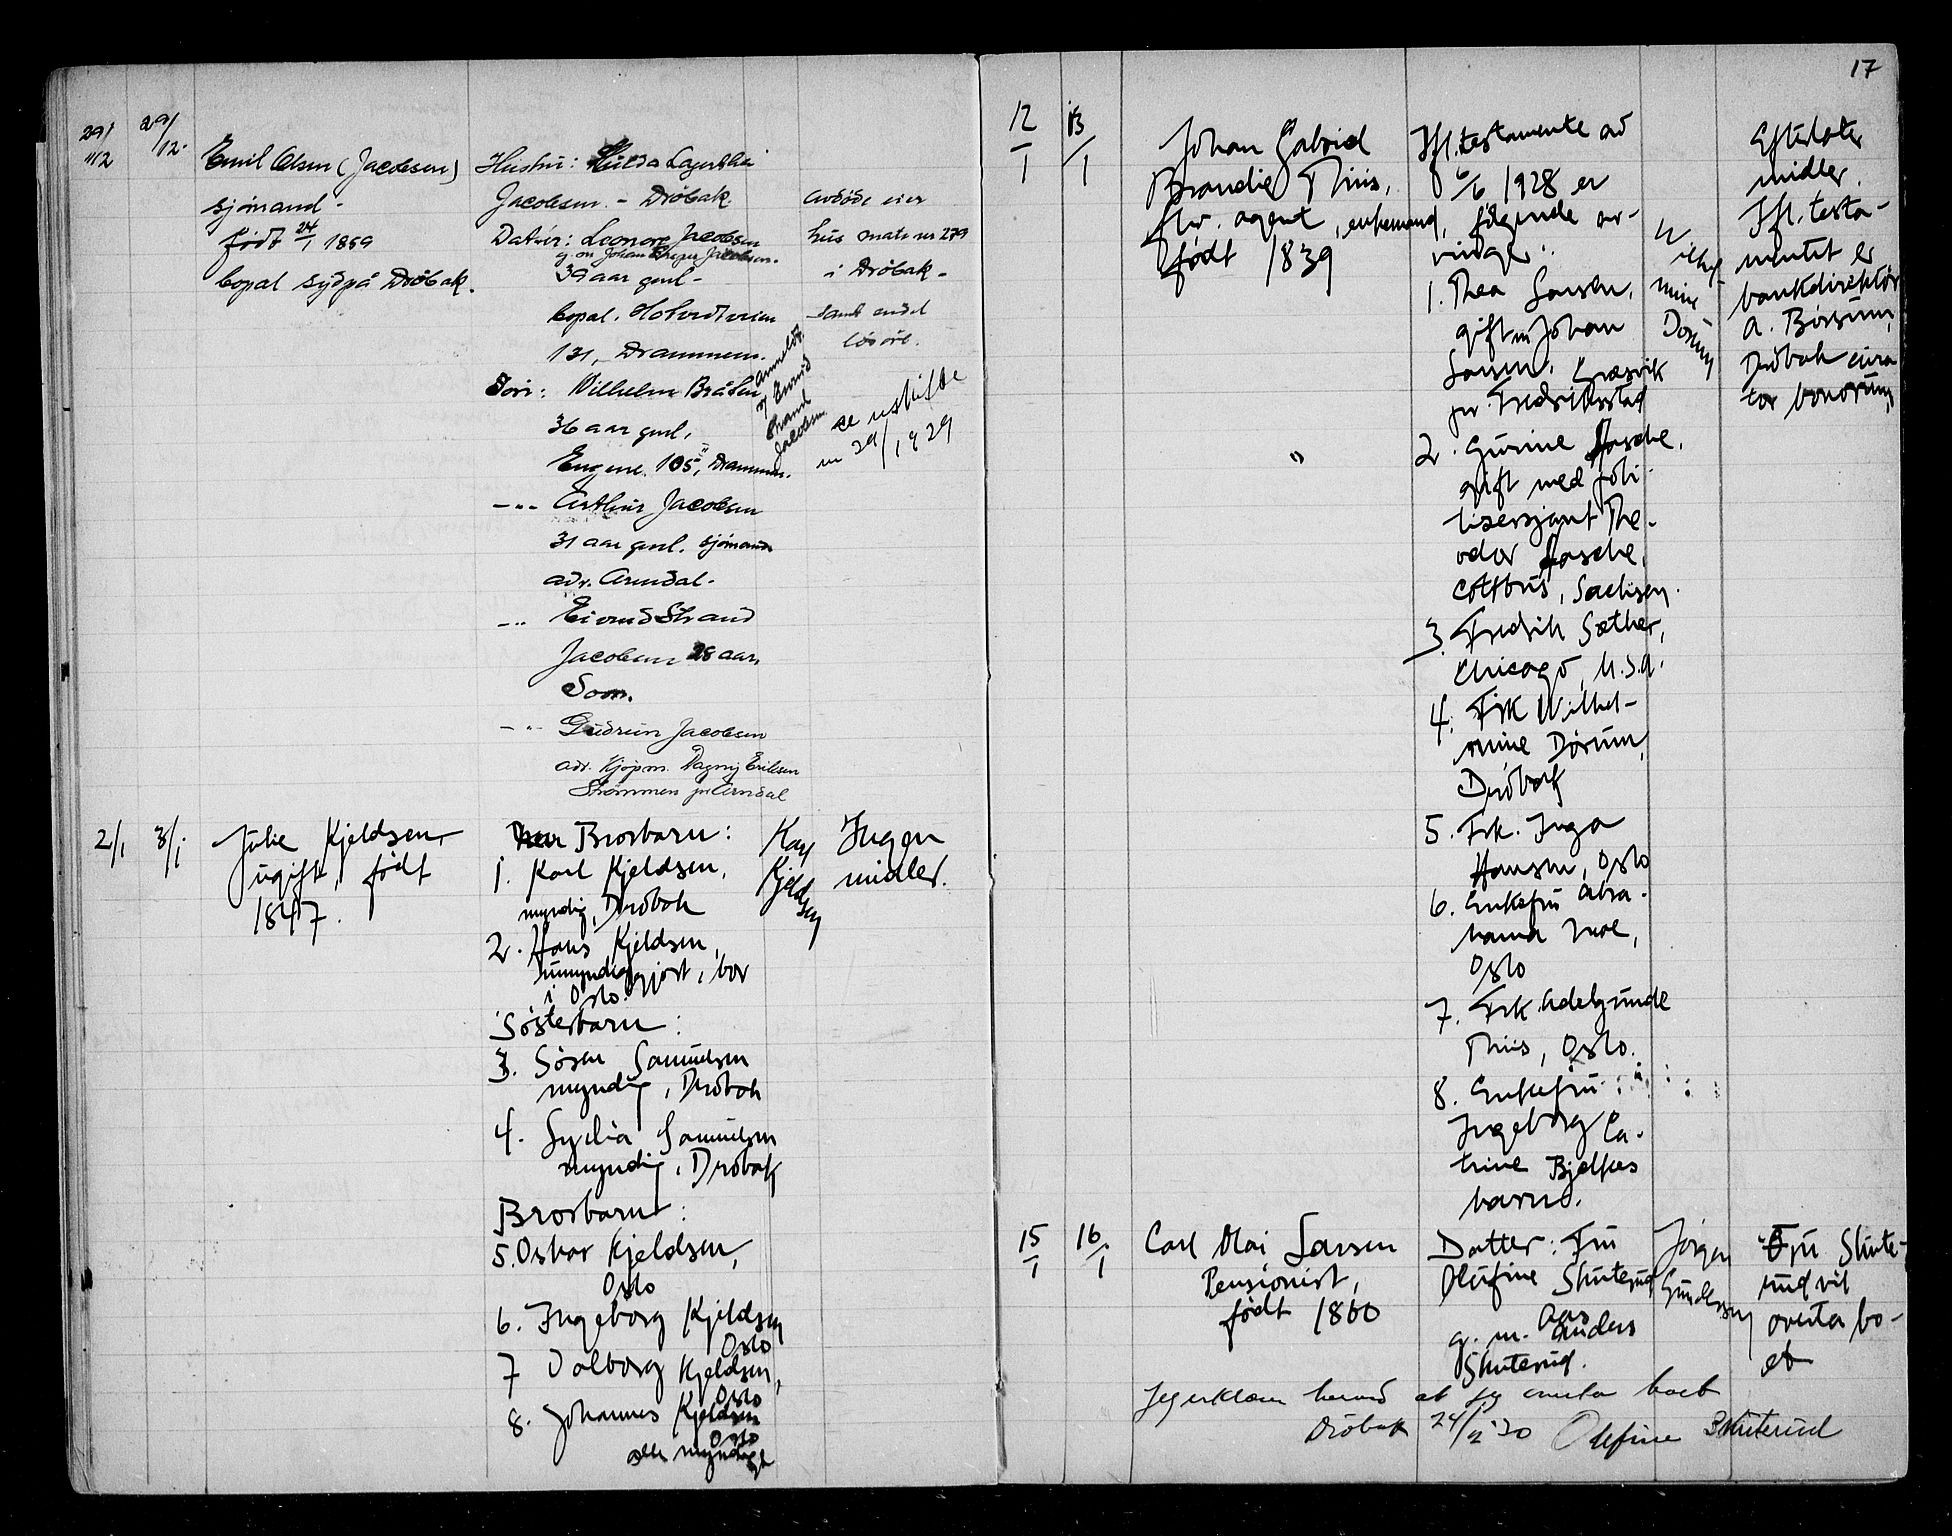 29/12
29/12.
Emil Olsen (Jacobsen)
sjömand -
født 24/1 1859
bopal sydpå Dröbak.
Hustru: Hulda
Jacobsen - Dröbak.
Datter: Leonore Jacobsen
g. m. Johan Jacobsen.
39 aar gml -
bopal.
131, Drammen.
Sön: Wilhelm Bråten
36 aar gml.
Engene 105, Drammen.
- " - Arthur Jacobsen
31 aar gml. sjömand
adr. Arendal -
- " - Eivind Strand
Jacobsen 28 aar,
Som.
- " - Gudrun Jacobsen
adr. Kjöpm. Dagny Eriksen
Strömmen pr Arndal
Anmeldt
af Eivind
Strand
Jacobsen
avdöde eier
hus matr nr 279
i Dröbak -
samt endel
lösöre.
se utskifte
29/1 1929
2/1
3/1
Julie Kjeldsen,
ugift, født
1847.
Brorbarn:
1. Karl Kjeldsen,
myndig, Drøbak
2. Hans Kjeldsen,
umyndiggjort, bor
i Oslo.
Søsterbarn:
3. Søren Samuelsen
myndig, Drøbak
4. Lydia Samuelsen
myndig, Drøbak
Brorbarn:
5. Oskar Kjeldsen,
Oslo
6. Ingeborg Kjeldsen
Oslo
7 Valborg Kjeldsen,
Oslo
8. Johannes Kjeldsen
Oslo
alle myndige
Karl
Kjeldsen
Ingen
midler.
17
12/1
13/1
Johan Gabriel
Brandie Thiis,
fhv. agent, enkemand,
født 1839
Ifl. testamente av
6/6 1928 er
følgende ar-
vinger:
1. Thea Larsen,
gift m Johan
Larsen, Græsvik
pr. Fredriksstad
2. Gurine Hasche,
gift med poli-
tisersjant The-
odor Hasche,
Cottbus, Sachsen.
3. Fredrik Sæther,
Chicago, U.S.A.
4. Frk Wilhel-
mine Dørum,
Drøbak
5. Frk. Inga
Hansen, Oslo
6. Enkefru Abra-
hama Moe,
Oslo
7. Frk. Adelgunde
Thiis, Oslo.
8. Enkefru
Ingeborg Ca-
trine Bjelkes
barn.
Wilhel
mine
Dørum
Efterlater
midler.
Ifl. testa-
mentet er
bankdirektør
A. Børsum,
Drøbak cura
tor bonorum,
"
15/1
16/1
Carl Olai Larsen
Pensionist,
født 1860
Datter: Fru
Olufine Skuterud
Aas
g. m. Anders
Skuterud.
Jørgen
Gundersen
Fru Skute-
rud vil
overta bo-
et
Jeg erklærer herved at jeg overtar boet
Dröbak 24/2 30 Olefine Skuterud